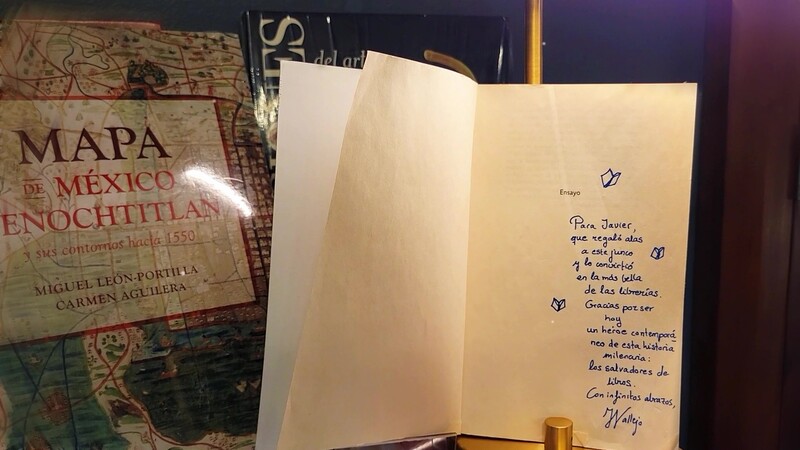 MAPA
DE MÉXICO
ENOCHTITLAN
y sus contornos hacia 1550
MIGUEL LEÓN-PORTILLA
CARMEN AGUILERA
ES
del art
Ensayo
Para Javier,
que regaló alas
a este junco
y lo convirtió
en la más bella
de las librerías.
Gracias por ser
hoy
un héroe contemporá
neo de esta historia
milenaria:
los salvadores de
libros.
Con infinitos abrazos,
IVallejo